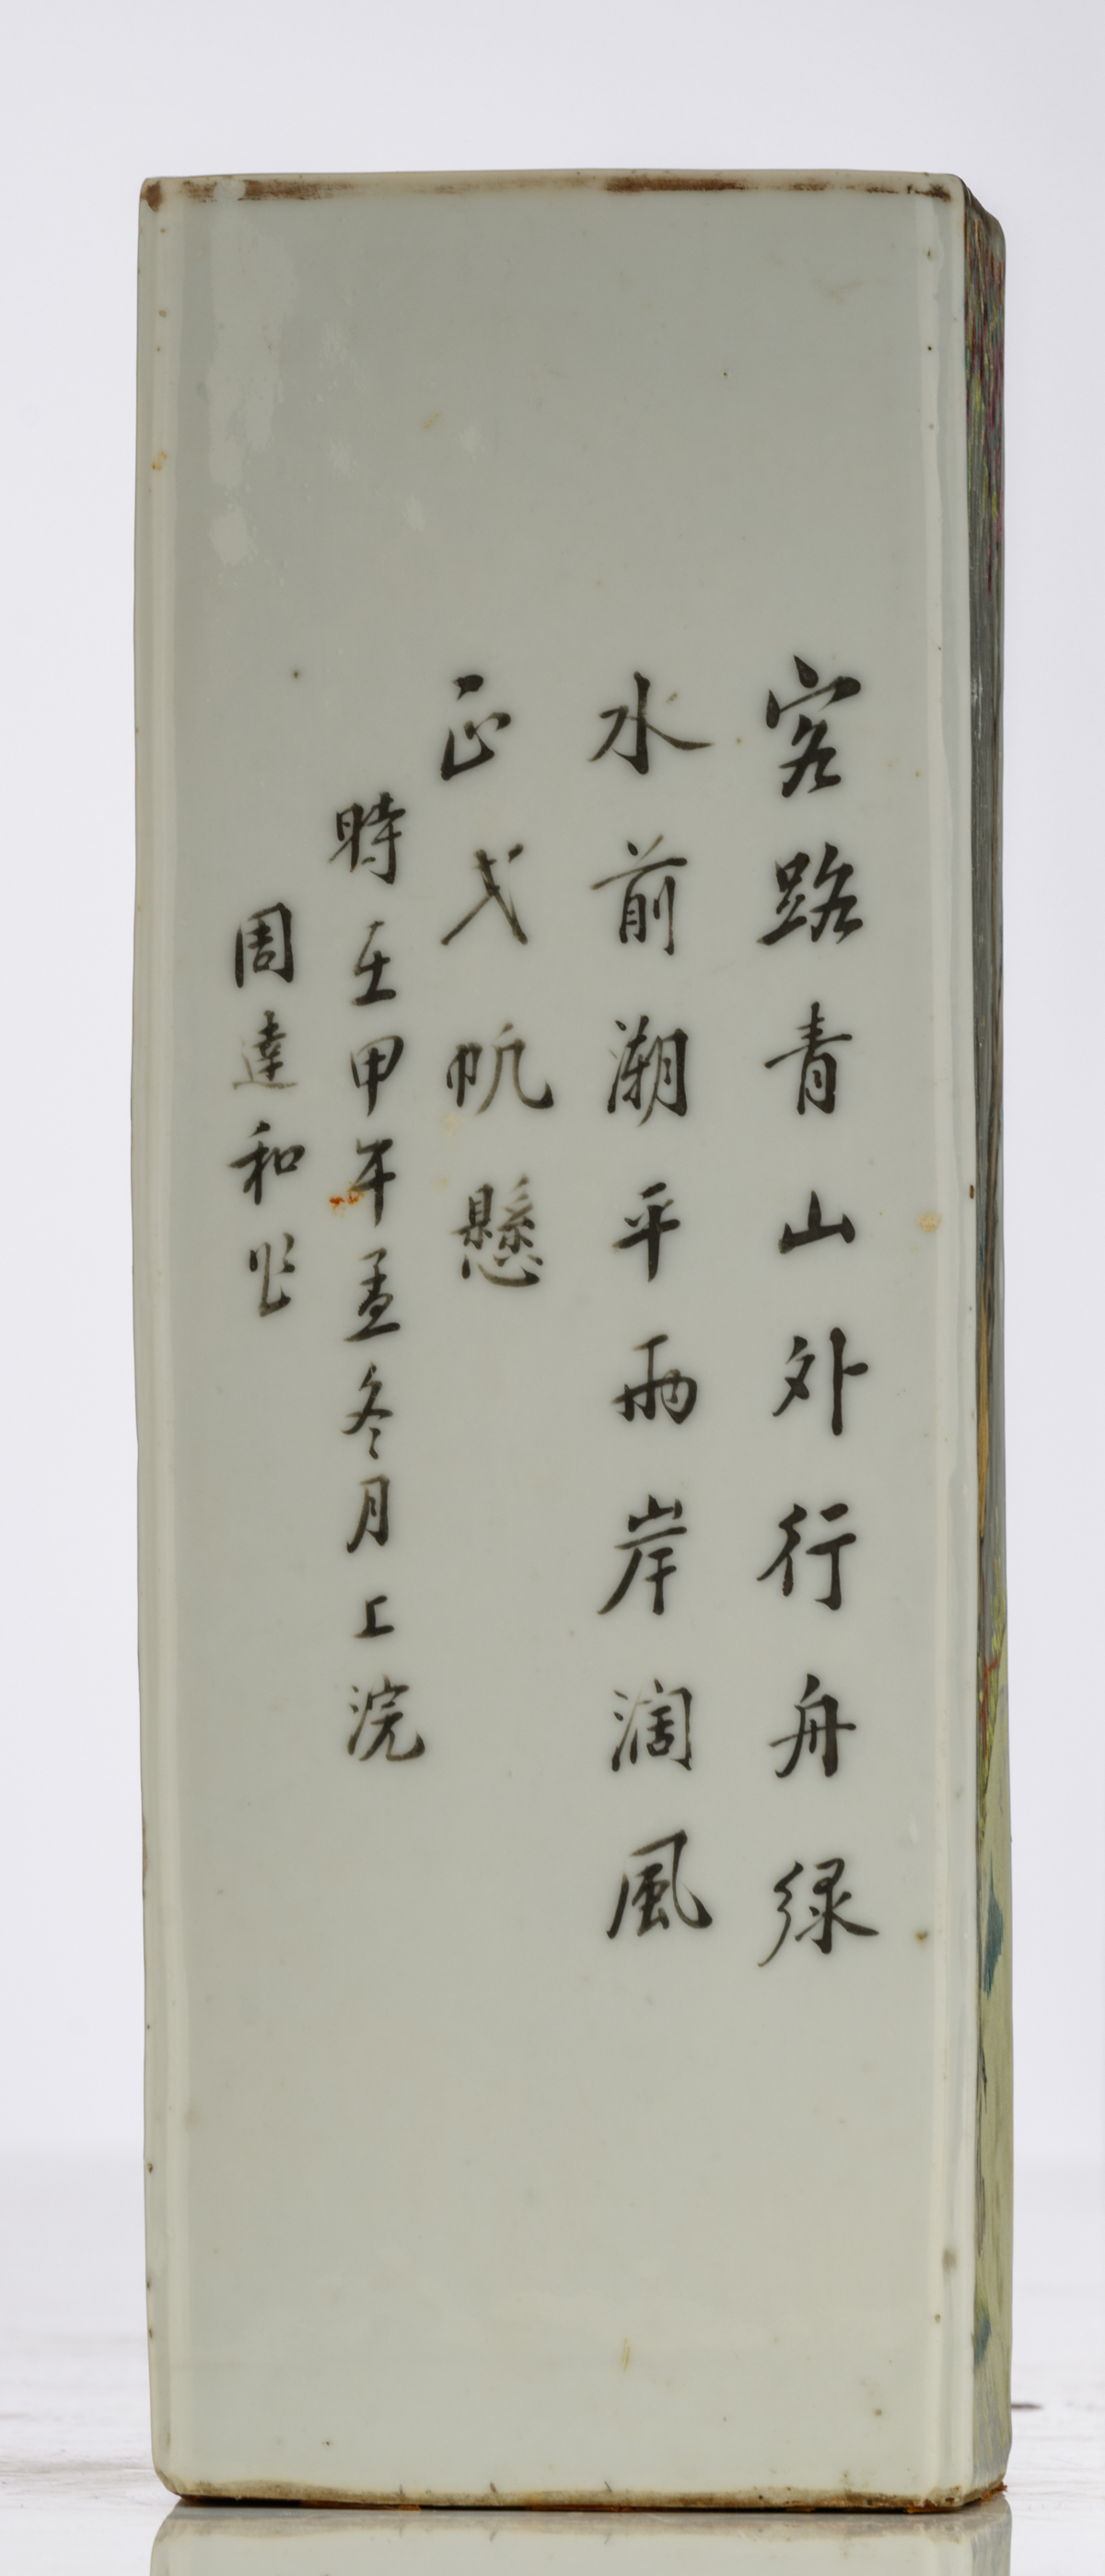 客路青山外行舟绿
水前潮平兩岸濶風
正弋帆懸
時在甲午孟冬月上浣
周達和作